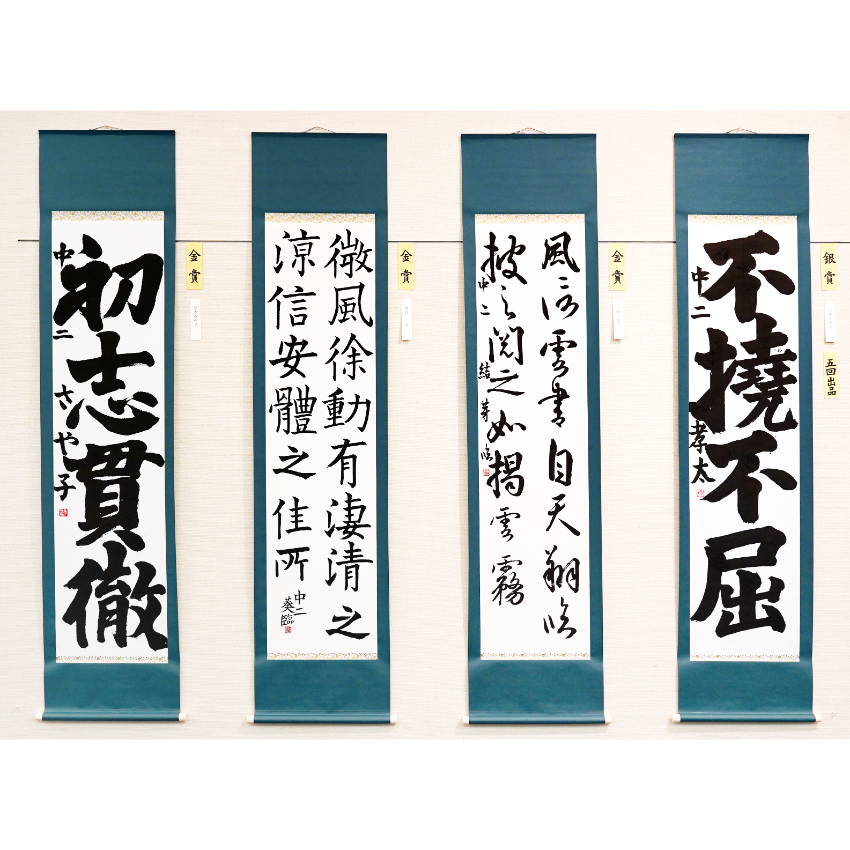 初志貫徹
中二 さや子
金賞
微風徐動有淒清之
涼信安體之佳所
中二
葵臨
金賞
風信雲書自天翔臨
披之閲之如掲雲霧
中二 結芽臨
金賞
不撓不屈
中二 孝太
銀賞
五回出品